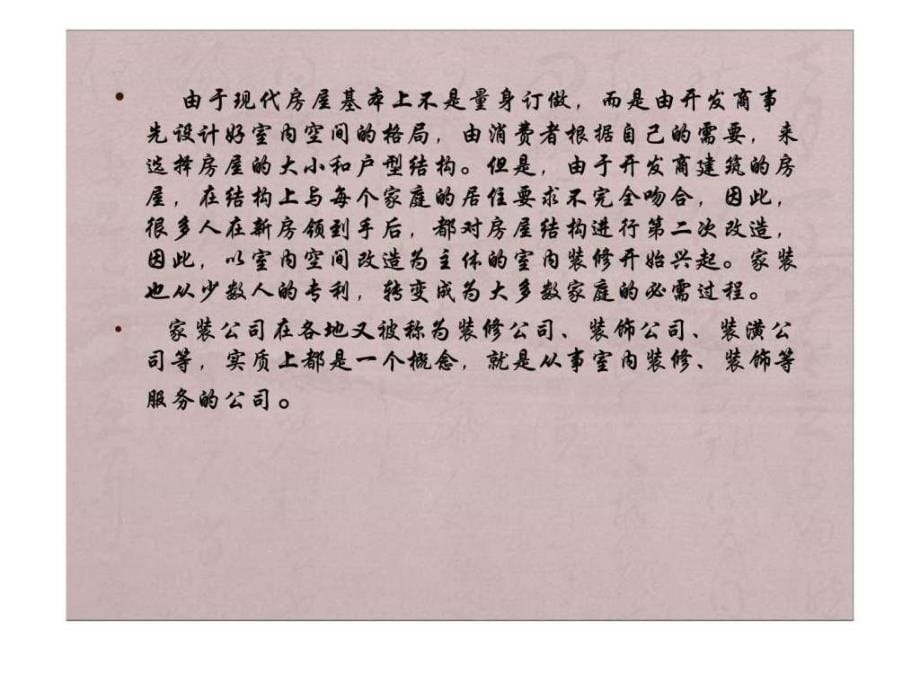 • 由于现代房屋基本上不是量身订做，而是由开发商事
先设计好室内空间的格局，由消费者根据自己的需要，来
选择房屋的大小和户型结构。但是，由于开发商建筑的房
屋，在结构上与每个家庭的居住要求不完全吻合，因此，
很多人在新房领到手后，都对房屋结构进行第二次改造，
因此，以室内空间改造为主体的室内装修开始兴起。家装
也从少数人的专利，转变成为大多数家庭的必需过程。
• 家装公司在各地又被称为装修公司、装饰公司、装潢公
司等，实质上都是一个概念，就是从事室内装修、装饰等
服务的公司。